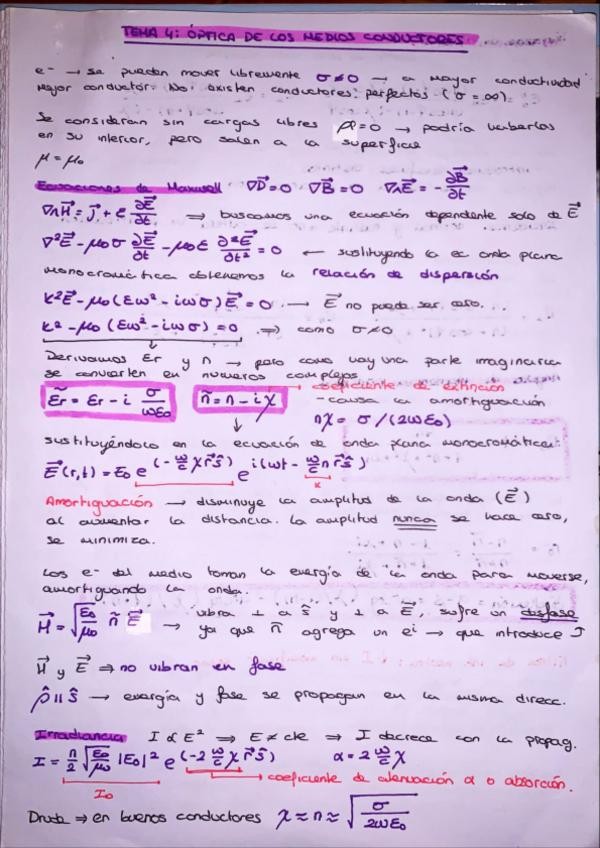 TEMA 4: ÓPTICA DE LOS MEDIOS CONDUCTORES
e⁻ → se pueden mover libremente σ≠0 → a mayor conductividad
mejor conductor. No existen conductores perfectos (σ = ∞).
Se consideran sin cargas libres ρ=0 → podría haberlas
en su interior, pero salen a la superficie
μ = μ₀
Ecuaciones de Maxwell ∇D⃗=0 ∇B⃗=0 ∇∧E⃗ = -∂B⃗/∂t
∇∧H⃗ = j⃗ + ε ∂E⃗/∂t ⇒ buscamos una ecuación dependiente solo de E⃗
∇²E⃗ - μ₀σ ∂E⃗/∂t - μ₀ε ∂²E⃗/∂t² = 0 ← sustituyendo la ec onda plana
monocromática obtenemos la relación de dispersión
k²E⃗ - μ₀(εω² - iωσ)E⃗ = 0 → E⃗ no puede ser cero...
k² - μ₀(εω² - iωσ) = 0 ⇒ como σ≠0
Derivamos εr y n → pero como hay una parte imaginaria
se convierten en números complejos
ε̃r = εr - i σ/ωε₀ ñ = n - iχ → coeficiente de extinción
- causa la amortiguación
nχ = σ/(2ωε₀)
sustituyéndolo en la ecuación de onda plana monocromática:
E⃗(r,t) = E₀ e^(-ω/c χ r⃗ŝ) e^i(ωt - ω/c n r⃗ŝ)
k
Amortiguación → disminuye la amplitud de la onda (E⃗)
al aumentar la distancia. La amplitud nunca se hace cero,
se minimiza.
Los e⁻ del medio toman la energía de la onda para moverse,
amortiguando la onda.
H⃗ = √(ε₀/μ₀) ñ E⃗ → vibra ⊥ a ŝ y ⊥ a E⃗, sufre un desfase
ya que ñ agrega un eⁱ → que introduce
H⃗ y E⃗ ⇒ no vibran en fase
p̂ ∥ ŝ → energía y fase se propagan en la misma direcc.
Irradiancia I α E² ⇒ E ≠ cte ⇒ I decrece con la propag.
I = n/2 √(ε₀/μ₀) |E₀|² e^(-2 ω/c χ r⃗ŝ) α = 2 ω/c χ
I₀ → coeficiente de atenuación α o absorción.
Drude ⇒ en buenos conductores χ ≈ n ≈ √(σ/2ωε₀)